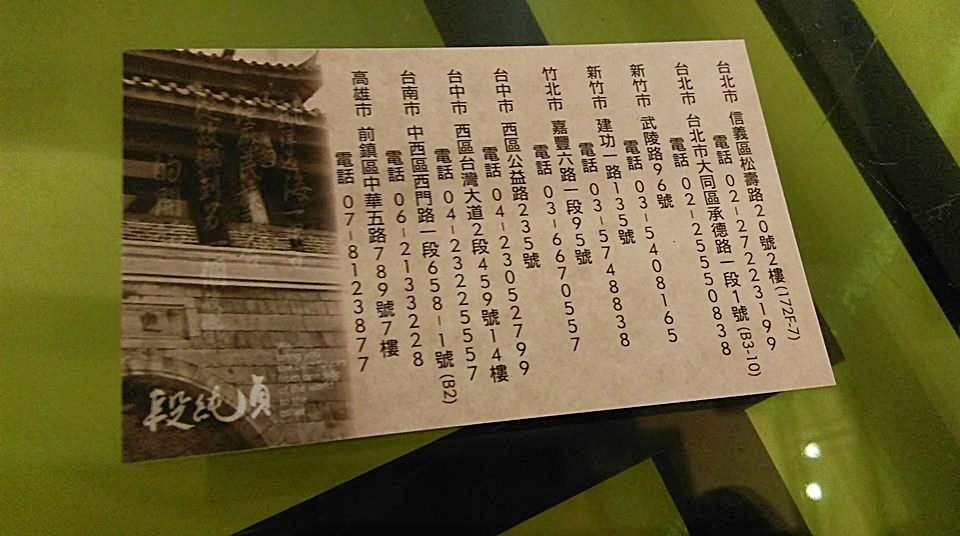 台北市 信義區松壽路20號2樓(172F-7)
電話 02-27223199
台北市 台北市大同區承德路一段1號(B3-10)
電話 02-25550838
新竹市 武陵路96號
電話 03-5408165
新竹市 建功一路135號
電話 03-5748838
竹北市 嘉豐六路一段95號
電話 03-6670557
台中市 西區公益路235號
電話 04-23052799
台中市 西區台灣大道2段459號14樓
電話 04-23225557
台南市 中西區西門路一段658-1號(B2)
電話 06-2133228
高雄市 前鎮區中華五路789號7樓
電話 07-8123877
段純貞